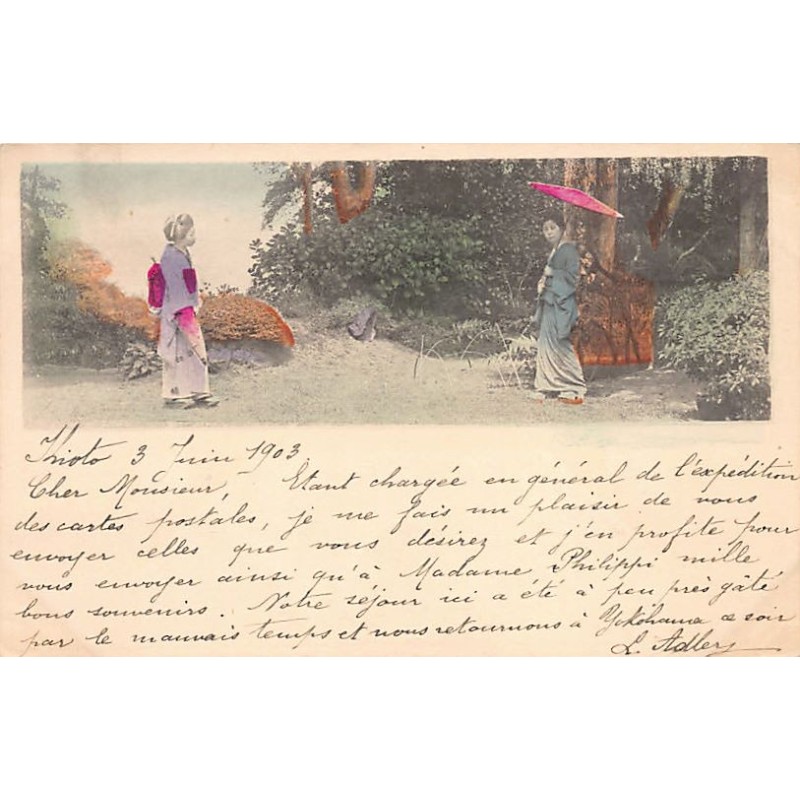 Kioto 3 Juin 1903
Cher Monsieur, Etant chargée en général de l'expédition
des cartes postales, je me fais un plaisir de vous
envoyer celles que vous désirez et j'en profite pour
vous envoyer ainsi qu'à Madame Philippi mille
bons souvenirs. Notre séjour ici a été à peu près gâté
par le mauvais temps et nous retournons à Yokohama ce soir
L. Adler